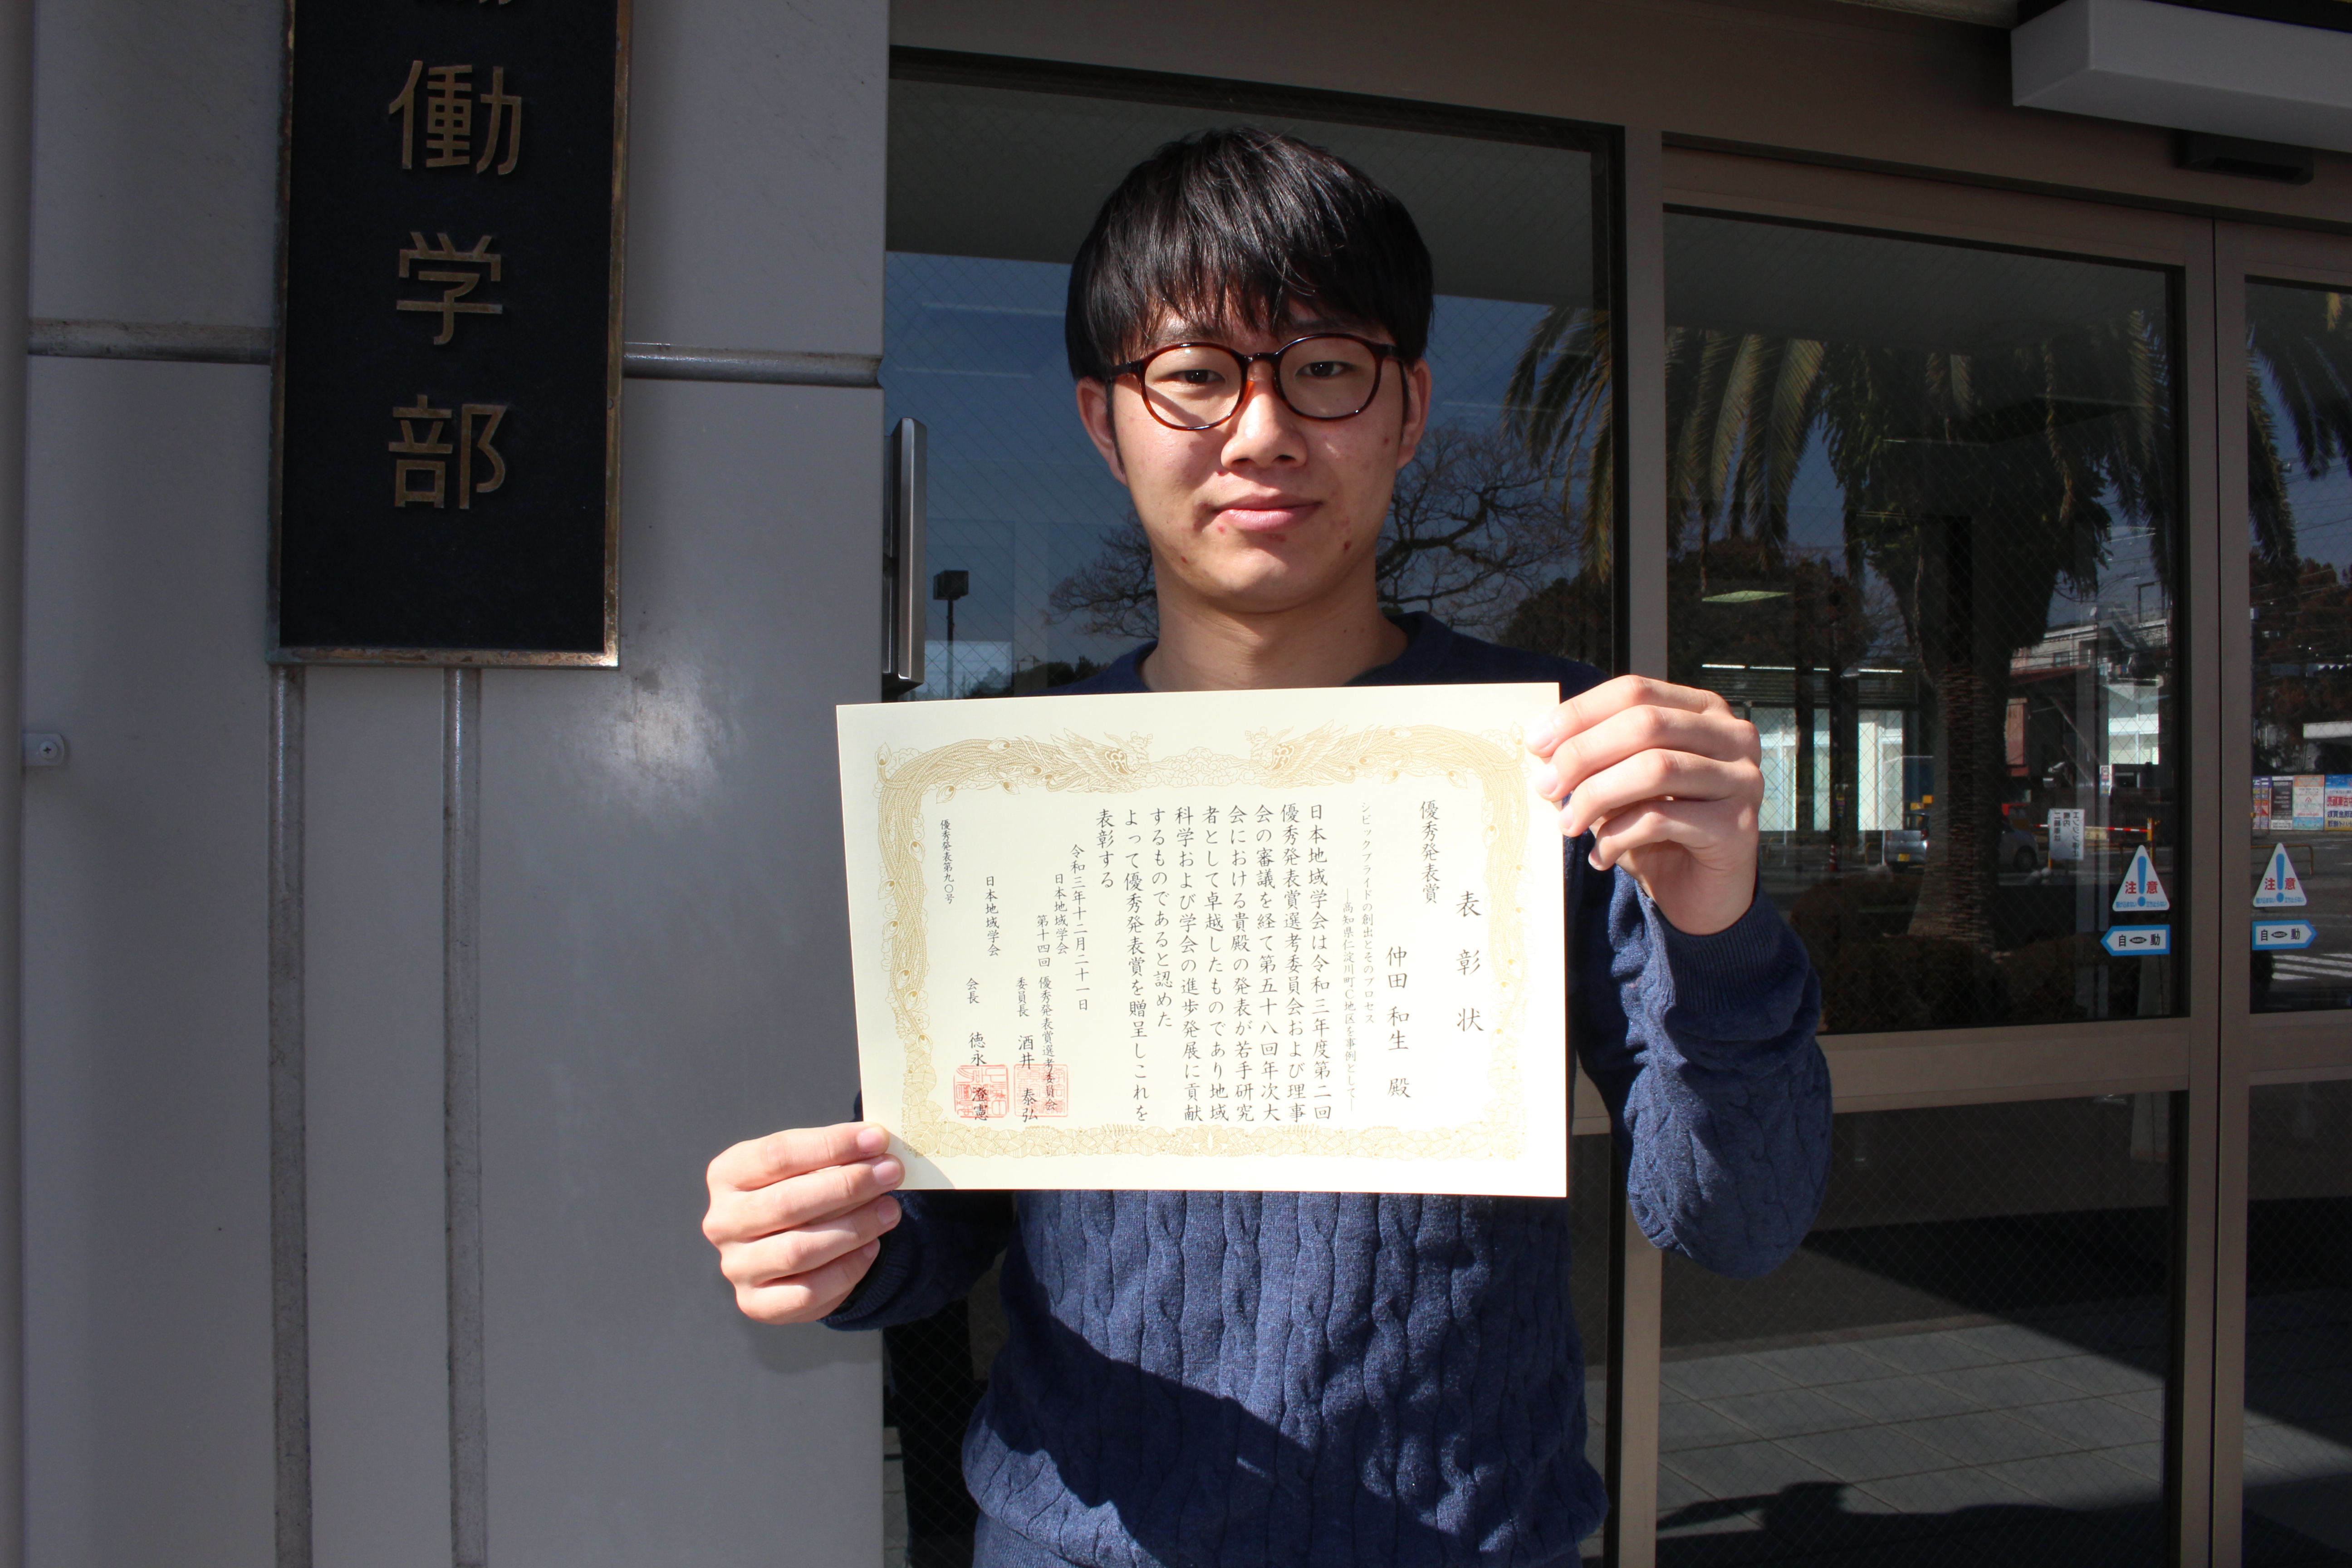 働学部
表彰状
優秀発表賞
仲田 和生 殿
シビックプライドの創出とそのプロセス
―高知県仁淀川町C地区を事例として―
日本地域学会は令和三年度第二回
優秀発表賞選考委員会および理事
会の審議を経て第五十八回年次大
会における貴殿の発表が若手研究
者として卓越したものであり地域
科学および学会の進歩発展に貢献
するものであると認めた
よって優秀発表賞を贈呈しこれを
表彰する
令和三年十二月二十一日
日本地域学会
第十四回 優秀発表賞選考委員会
委員長 酒井 泰弘
日本地域学会
会長 徳永 澄憲
優秀発表第九〇号
注意
自動
注意
自動